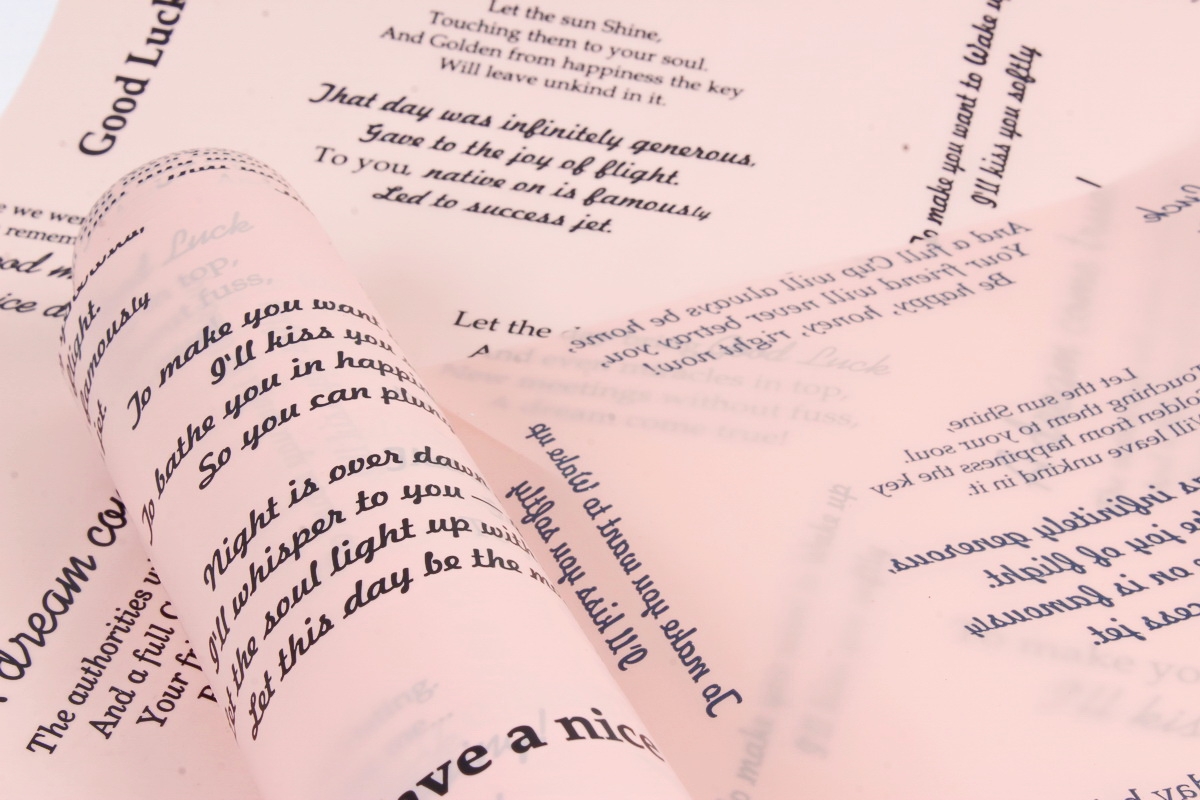 Good Luck
Let the sun Shine,
Touching them to your soul.
And Golden from happiness the key
Will leave unkind in it.
That day was infinitely generous,
Gave to the joy of flight.
To you, native on is famously
Led to success jet.
To make you want to Wake up
I'll kiss you softly
we we
remem
ood m
ice d
light.
famously
jet
Good Luck
top,
fuss,
To make you want
I'll kiss you
To bathe you in happi
So you can plun
Night is over dawn
I'll whisper to you —
Let the soul light up with
Let this day be the m
ave a nice
dream co
The authorities w
And a full C
Your fri
Let the
And a full Cup will always be home,
Your friend will never betray you,
Be happy, honey, right now!
Good Luck
And even miracles in top,
New meetings without fuss,
A dream come true!
To make you want to Wake up
I'll kiss you softly
Let the sun Shine,
Touching them to your soul.
olden from happiness the key
Will leave unkind in it.
s infinitely generous,
e joy of flight.
on is famously
cess jet.
To make you want to Wake up
I'll kiss you softly
To make yo
I'll kiss
Luck